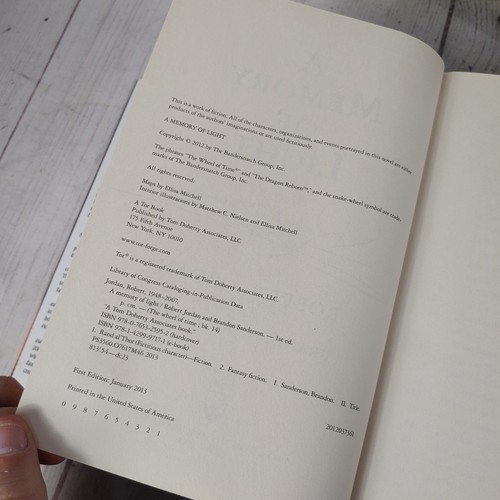 This is a work of fiction. All of the characters, organizations, and events portrayed in this novel are either
products of the authors' imaginations or are used fictitiously.
A MEMORY OF LIGHT
Copyright © 2012 by The Bandersnatch Group, Inc.
The phrases "The Wheel of Time®" and "The Dragon Reborn™," and the snake-wheel symbol are trade-
marks of The Bandersnatch Group, Inc.
All rights reserved.
Maps by Ellisa Mitchell
Interior illustrations by Matthew C. Nielsen and Ellisa Mitchell
A Tor Book
Published by Tom Doherty Associates, LLC
175 Fifth Avenue
New York, NY 10010
www.tor-forge.com
Tor® is a registered trademark of Tom Doherty Associates, LLC.
Library of Congress Cataloging-in-Publication Data
Jordan, Robert, 1948–2007.
A memory of light / Robert Jordan and Brandon Sanderson. — 1st ed.
p. cm. — (The wheel of time ; bk. 14)
"A Tom Doherty Associates book."
ISBN 978-0-7653-2595-2 (hardcover)
ISBN 978-1-4299-9717-1 (e-book)
1. Rand al'Thor (Fictitious character)—Fiction. 2. Fantasy fiction. I. Sanderson, Brandon. II. Title.
PS3560.O7617M46 2013
813'.54—dc23
2012037361
First Edition: January 2013
Printed in the United States of America
0 9 8 7 6 5 4 3 2 1